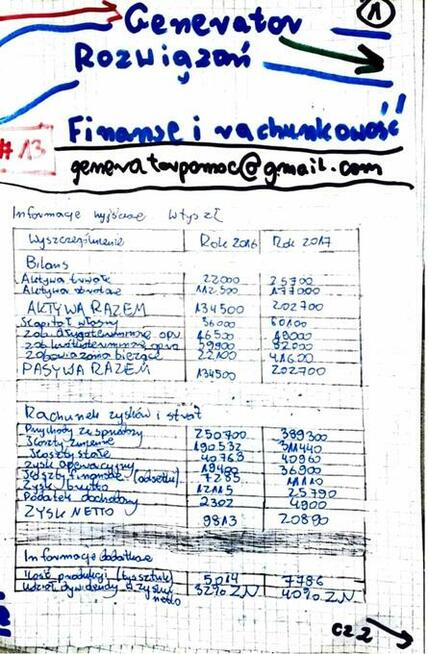 1
Generator
Rozwiązań
Finanse i rachunkowość
# 13
generatorpomoc@gmail.com
Informacje wyjściowe w tys zł
Wyszczególnienie Rok 2016 Rok 2017
Bilans
Aktywa trwałe 22000 25700
Aktywa obrotowe 112500 177000
AKTYWA RAZEM 134500 202700
Kapitał własny 56000 60100
zob. długoterminowe opr. 16500
zob. krótkoterminowe opr.
zobowiązania bieżące 22100 41600
PASYWA RAZEM 134500 202700
Rachunek zysków i strat
Przychody ze sprzedaży 250700 389300
Koszty zmienne 190532 311440
Koszty stałe 40768 40960
zysk operacyjny 19400 36900
Koszty finansowe (odsetki) 7285 11110
Zysk brutto 12115 25790
Podatek dochodowy 2302 4900
ZYSK NETTO 9813 20890
Informacje dodatkowe
Ilość produkcji (tys sztuk) 5014 7786
Udział dywidendy w zysku netto 32% ZN 40% ZN
cz 2